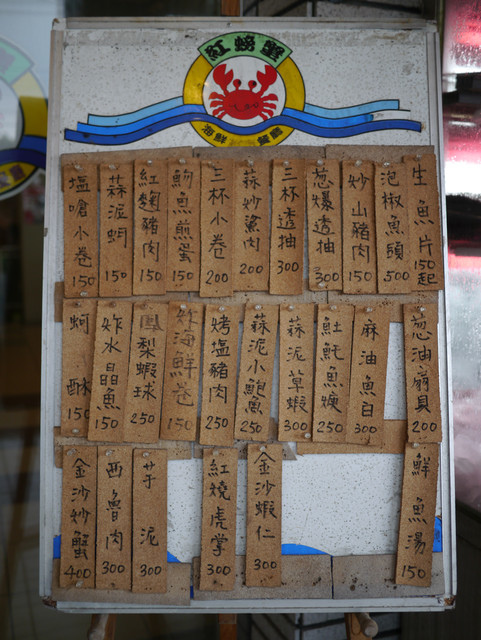 紅螃蟹
海鮮 餐廳
生魚片 150起
泡椒魚頭 500
炒山豬肉 150
葱爆透抽 300
三杯透抽 300
蒜炒鯊肉 200
三杯小卷 200
魩魚煎蛋 150
紅麴豬肉 150
蒜泥蚵 150
塩嗆小卷 150
葱油扇貝 200
麻油魚白 300
魠魚焿 250
蒜泥草蝦 300
蒜泥小鮑魚 250
烤塩豬肉 250
炸海鮮卷 150
鳳梨蝦球 250
炸水晶魚 150
蚵酥 150
鮮魚湯 150
金沙蝦仁 300
紅燒虎掌 300
芋泥 300
西魯肉 300
金沙炒蟹 400